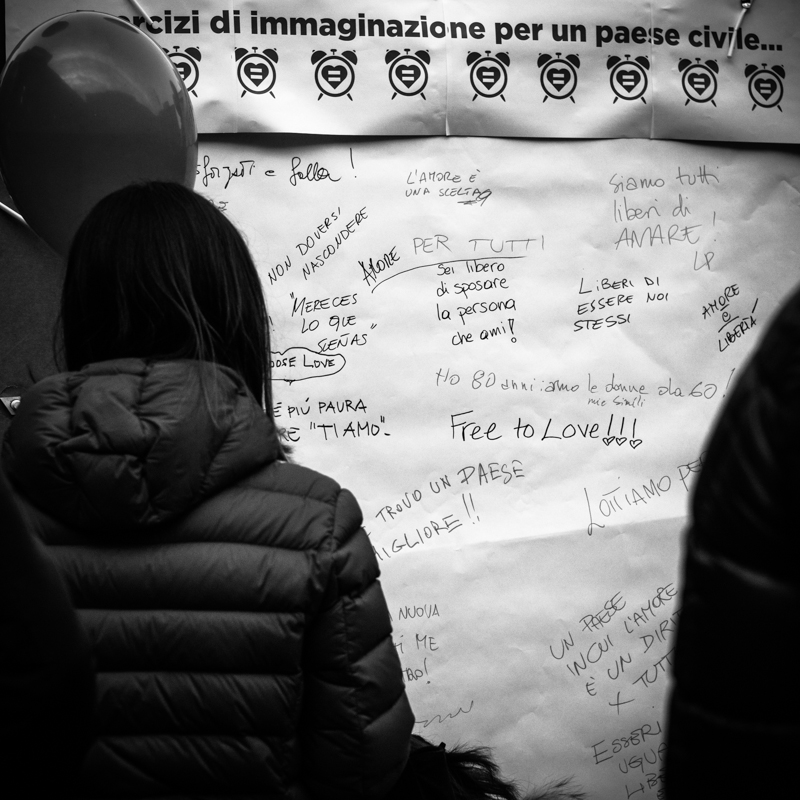 ercizi di immaginazione per un paese civile...
sforzati e folla!
L'AMORE È
UNA SCELTA
Siamo tutti
liberi di
AMARE!
LP
NON DOVERSI
NASCONDERE
AMORE PER TUTTI
sei libero
di sposare
la persona
che ami!
LIBERI DI
ESSERE NOI
STESSI
AMORE
è
LIBERTÁ!
"MERECES
LO QUE
SEÑAS"
OOSE LOVE
Ho 80 anni: amo le donne da 60!
mie simili
È PIÚ PAURA
RE "TI AMO".
Free to Love!!!
TROVO UN PAESE
MIGLIORE!!
LOTTIAMO PER
NUOVA
ME
UN PAESE
IN CUI L'AMORE
È UN DIRI
X TUTT
ESSERI
UGUA
LIBE